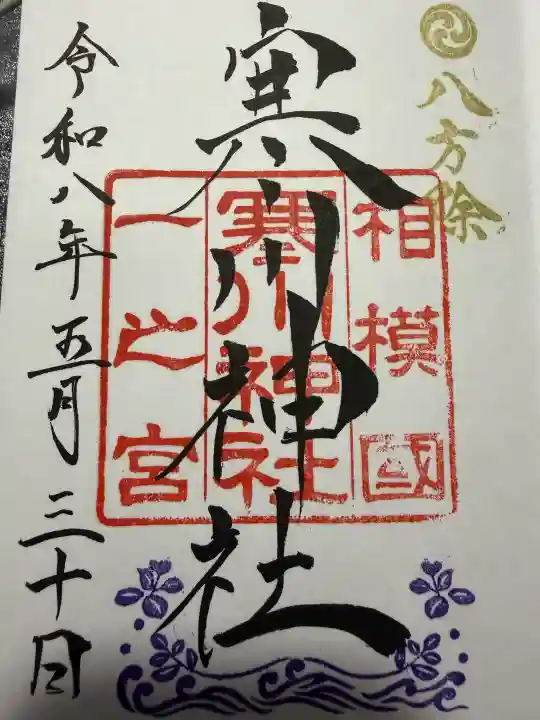 八方除
相模國
寒川神社
一之宮
寒川神社
令和八年五月三十日